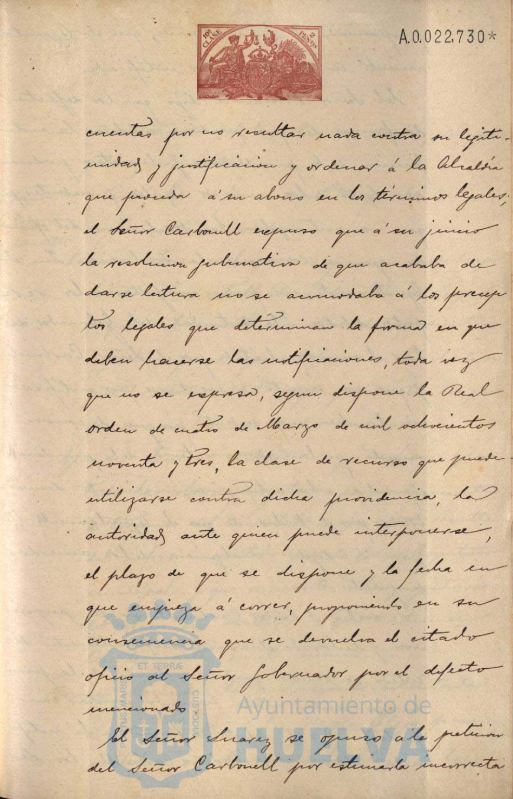 10ª CLASE 2 PESETAS
A.0.022.730*
cuentas por no resultar nada contra su legiti-
midad y justificacion y ordenar á la Alcaldía
que proceda á su abono en los términos legales;
el Señor Carbonell expuso que á su juicio
la resolucion gubernativa de que acababa de
darse lectura no se acomodaba á los precep-
tos legales que determinan la forma en que
deben hacerse las notificaciones, toda vez
que no se expresa, segun dispone la Real
orden de cuatro de Marzo de mil ochocientos
noventa y tres, la clase de recurso que puede
utilizarse contra dicha providencia, la
autoridad ante quien puede interponerse,
el plazo de que se dispone y la fecha en
que empieza á correr, proponiendo en su
consecuencia que se devuelva el citado
oficio al Señor Gobernador por el defecto
mencionado
El Señor Suarez se opuso a la peticion
del Señor Carbonell por estimarla incorrecta
Ayuntamiento de
HUELVA